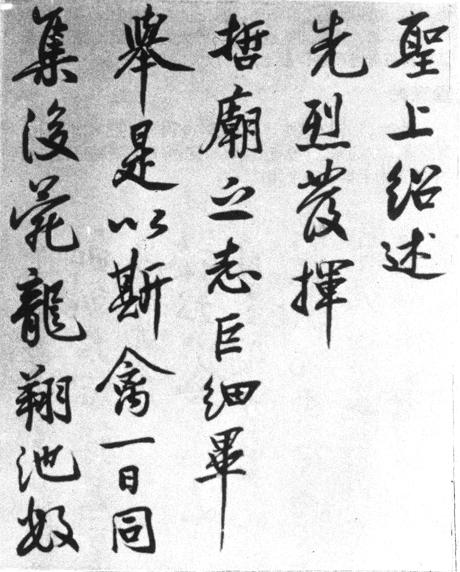 聖上紹述
先烈發揮
哲廟之志巨細畢
舉是以斯禽一日同
集後苑龍翔池數